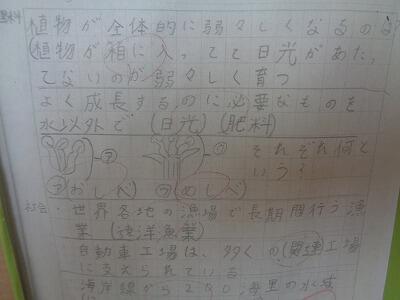 理科
植物が全体的に弱々しくなるのは?
(植物が箱に入ってて日光があたっ
てないのが弱々しく育つ
よく成長するのに必要なものを
水以外で (日光) (肥料)
㋐ ㋑ それぞれ何と
いう?
㋐おしべ ㋑めしべ
社会・世界各地の漁場で長期間行う漁
業 (遠洋漁業)
自動車工場は、多くの(関連)工場
に支えられている
海岸線から200海里の水域